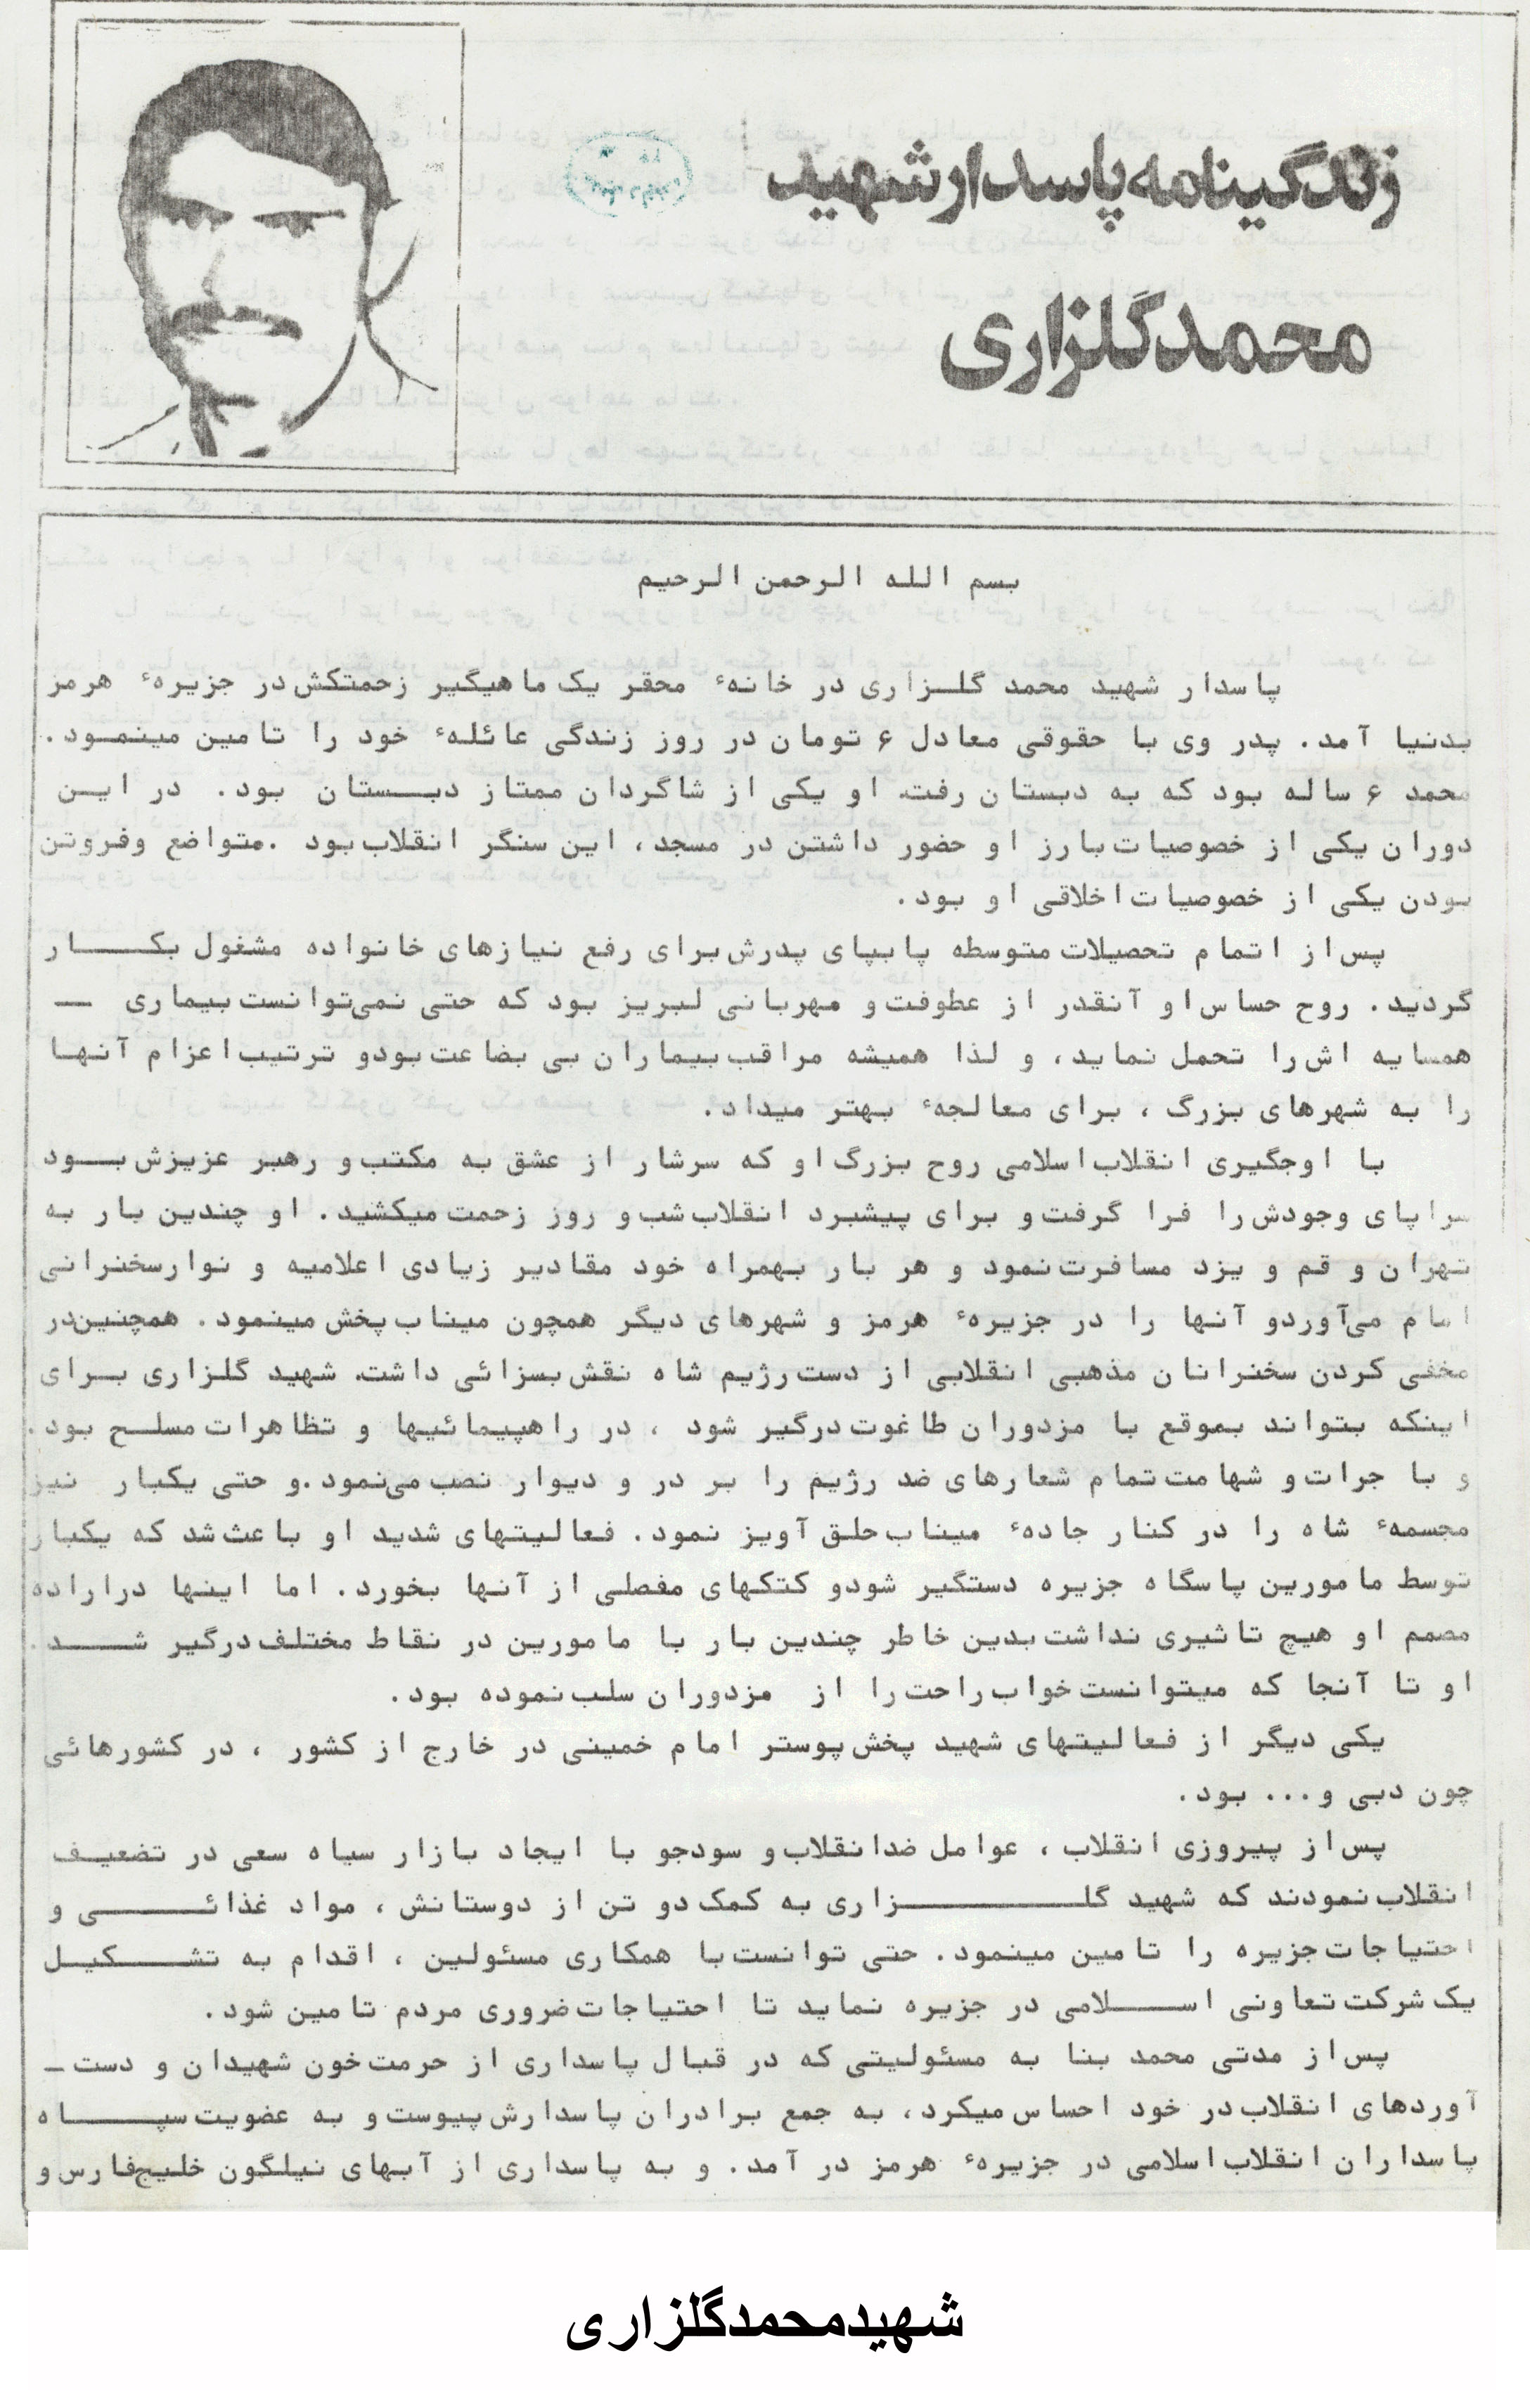 زندگینامه پاسدار شهید
محمد گلزاری
بسم الله الرحمن الرحیم
پاسدار شهید محمد گلـزاری در خانهٔ محقر یک ماهیگیر زحمتکش در جزیرهٔ هرمز
بدنیا آمد. پدر وی با حقوقی معادل ۶ تومان در روز زندگی عائلهٔ خود را تامین مینمـود.
محمد ۶ ساله بود که به دبستان رفت. او یکی از شاگردان ممتاز دبـــستان بود. در ایـن
دوران یکی از خصوصیات بارز او حضور داشتن در مسجد، این سنگر انقلاب بود .متواضع وفروتن
بودن یکی از خصوصیات اخلاقی او بود.
پس از اتمام تحصیلات متوسطه پابپای پدرش برای رفع نیازهای خانواده مشغول بکــــار
گردید. روح حساس او آنقدر از عطوفت و مهربانی لبریز بود که حتی نمی‌توانست بیماری ــ
همسایه اش را تحمل نماید، و لذا همیشه مراقب بیماران بی بضاعت بودو ترتیب اعزام آنهـا
را به شهرهای بزرگ ، برای معالجهٔ بهتر میداد.
با اوجگیری انقلاب اسلامی روح بزرگ او که سرشار از عشق به مکتب و رهبر عزیزش بـــود
سراپای وجودش را فرا گرفت و برای پیشبرد انقلاب شب و روز زحمت میکشید. او چندین بار به
تهران و قم و یزد مسافرت نمود و هر بار بهمراه خود مقادیر زیادی اعلامیه و نوارسخنرانی
امام می‌آوردو آنها را در جزیرهٔ هرمز و شهرهای دیگر همچون میناب پخش مینمود. همچنین‌در
مخفی کردن سخنرانان مذهبی انقلابی از دست رژیم شاه نقش بسزائی داشت. شهید گلزاری بـرای
اینکه بتواند بموقع با مزدوران طاغوت درگیر شود ، در راهپیمائیها و تظاهرات مسلـح بود.
و با جرات و شهامت تمام شعارهای ضد رژیم را بر در و دیوار نصب می‌نمود .و حتی یکبار نیز
مجسمهٔ شاه را در کنار جادهٔ میناب حلق آویز نمود. فعالیتهای شدید او باعث شد که یکبار
توسط مامورین پاسگاه جزیره دستگیر شودو کتکهای مفصلی از آنها بخورد. اما اینها دراراده
مصمم او هیچ تاثیری نداشت بدین خاطر چندین بار با مامورین در نقاط مختلف درگیر شــــد.
او تا آنجا که میتوانست خواب راحت را از مزدوران سلب نموده بود.
یکی دیگر از فعالیتهای شهید پخش پوستر امام خمینی در خارج از کشور ، در کشورهائی
چون دبی و... بود.
پس از پیروزی انقلاب ، عوامل ضدانقلاب و سودجو با ایجاد بازار سیاه سعی در تضعیـف
انقلاب نمودند که شهید گلــــــــــزاری به کمک دو تن از دوستانش ، مواد غذائــــــی و
احتیاجات جزیره را تامین مینمود. حتی توانست با همکاری مسئولین ، اقدام به تشــــکیـل
یک شرکت تعاونی اســـــلامی در جزیره نماید تا احتیاجات ضروری مردم تامین شود.
پس از مدتی محمد بنا به مسئولیتی که در قبال پاسداری از حرمت خون شهیدان و دست ــ
آوردهای انقلاب در خود احساس میکرد، به جمع برادران پاسدارش پیوست و به عضویت سپـــــاه
پاسداران انقلاب اسلامی در جزیرهٔ هرمز در آمد. و به پاسداری از آبهای نیلگون خلیج‌فارس و
شهیدمحمدگلزاری